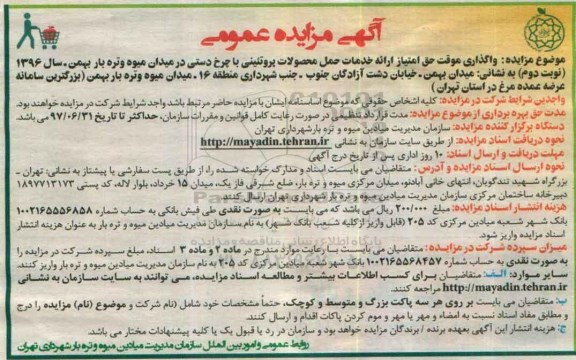 آگهی مزایده عمومی
موضوع مزایده: واگذاری موقت حق امتیاز ارائه خدمات حمل محصولات پروتئینی با چرخ دستی در میدان میوه و تره بار بهمن ـ سال ۱۳۹۶
(نوبت دوم) به نشانی: میدان بهمن ـ خیابان دشت آزادگان جنوب ـ جنب شهرداری منطقه ۱۶ ـ میدان میوه و تره بار بهمن (بزرگترین سامانه
عرضه عمده مرغ در استان تهران)
واجدین شرایط شرکت در مزایده: کلیه اشخاص حقوقی که موضوع اساسنامه ایشان با مزایده حاضر مرتبط باشد واجد شرایط شرکت در مزایده خواهند بود.
مدت حق بهره برداری از موضوع مزایده: مدت قرارداد تنظیمی در صورت رعایت کامل قوانین و مقررات سازمان، حداکثر تا تاریخ ۹۷/۰۶/۳۱ می باشد.
دستگاه برگزار کننده مزایده: سازمان مدیریت میادین میوه و تره بار شهرداری تهران
نحوه دریافت اسناد مزایده: از طریق سایت سازمان به نشانی http://mayadin.tehran.ir
مهلت دریافت و ارسال اسناد: ۱۰ روز اداری پس از تاریخ درج آگهی
نحوه ارسال اسناد مزایده و آدرس: متقاضیان می بایست اسناد و مدارک خواسته شده را، از طریق پست سفارشی یا پیشتاز به نشانی: تهران ـ
بزرگراه شهید تندگویان، انتهای خانی آبادنو، میدان مرکزی میوه و تره بار، ضلع شرقی فاز یک، میدان ۱۵ خرداد، بلوار لاله، کد پستی ۱۸۹۷۷۱۳۱۷۳
دبیرخانه ساختمان مرکزی سازمان مدیریت میادین میوه و تره بار شهرداری تهران ارسال کنند.
هزینه انتشار اسناد مزایده: مبلغ ۲۰۰/۰۰۰ ریال می باشد که می بایست به صورت نقدی طی فیش بانکی به حساب شماره ۱۰۰۲۱۶۵۵۵۶۸۵۸
بانک شهر شعبه میادین مرکزی کد ۲۰۵ (قابل واریز از کلیه شعب بانک شهر) به نام سازمان مدیریت میادین میوه و تره بار به عنوان هزینه انتشار
اسناد مزایده واریز شود.
میزان سپرده شرکت در مزایده: متقاضیان می بایست با رعایت موارد مندرج در ماده ۲ و ماده ۳ اسناد، مبلغ سپرده شرکت در مزایده را
به صورت نقدی به حساب شماره ۱۰۰۲۱۶۵۵۶۸۴۵۷ بانک شهر شعبه میادین مرکزی کد ۲۰۵ به نام سازمان مدیریت میادین میوه و تره بار واریز کنند.
سایر موارد: الف: متقاضیان برای کسب اطلاعات بیشتر و مطالعه اسناد مزایده، می توانند به سایت سازمان به نشانی
http://mayadin.tehran.ir مراجعه کنند.
ب: متقاضیان می بایست بر روی هر سه پاکت بزرگ و متوسط و کوچک، حتماً مشخصات خود شامل (نام شرکت و موضوع (نام) مزایده) را درج
و مطابق مفاد اسناد نسبت به امضاء و مهر یا مهر و موم کردن پاکات اقدام و ارسال کنند.
ج: هزینه انتشار این آگهی بعهده برنده / برندگان مزایده خواهد بود و سازمان در رد یا قبول یک یا کلیه پیشنهادات مختار می باشد.
روابط عمومی و امور بین الملل سازمان مدیریت میادین میوه و تره بار شهرداری تهران